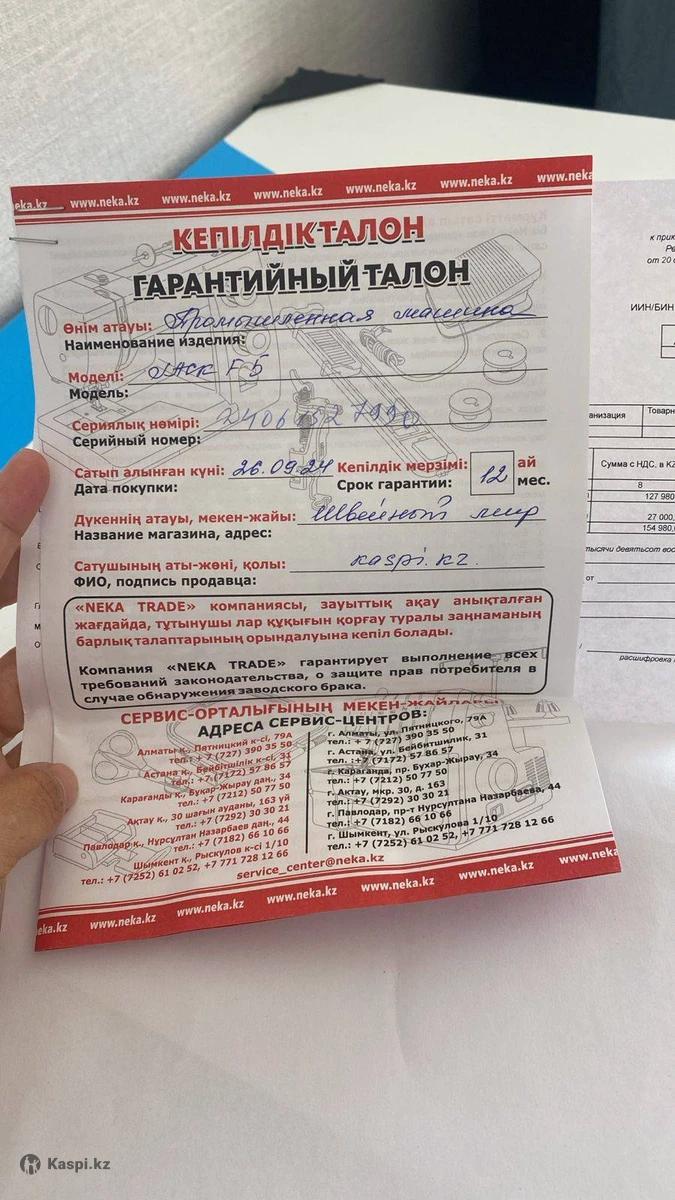 neka.kz www.neka.kz www.neka.kz www.neka.kz www.neka.kz www.neka.kz www.neka.kz
КЕПІЛДІК ТАЛОН
ГАРАНТИЙНЫЙ ТАЛОН
Өнім атауы: Промышленная машина
Наименование изделия:
Моделі: JACK F5
Модель:
Сериялық нөмірі:
Серийный номер:
Сатып алынған күні: 26.09.24 Кепілдік мерзімі: 12 ай
Дата покупки: Срок гарантии: мес.
Дүкеннің атауы, мекен-жайы: Швейный мир
Название магазина, адрес:
Сатушының аты-жөні, қолы: kaspi.kz.
ФИО, подпись продавца:
«NEKA TRADE» компаниясы, зауыттық ақау анықталған
жағдайда, тұтынушы лар құқығын қорғау туралы заңнаманың
барлық талаптарының орындалуына кепіл болады.
Компания «NEKA TRADE» гарантирует выполнение всех
требований законодательства, о защите прав потребителя в
случае обнаружения заводского брака.
СЕРВИС-ОРТАЛЫҒЫНЫҢ МЕКЕН-ЖАЙЛАРЫ
АДРЕСА СЕРВИС-ЦЕНТРОВ:
Алматы қ., Пятницкий к-сі, 79А
тел.: + 7 (727) 390 35 50
Астана қ., Бейбітшілік к-сі, 31
тел.: +7 (7172) 57 86 57
Қарағанды қ., Бұқар-Жырау даң., 34
тел.: +7 (7212) 50 77 50
Ақтау қ., 30 шағын ауданы, 163 үй
тел.: +7 (7292) 30 30 21
Павлодар қ., Нұрсұлтан Назарбаев даң., 44
тел.: +7 (7182) 66 10 66
Шымкент қ., Рысқулов к-сі 1/10
тел.: +7 (7252) 61 02 52, +7 771 728 12 66
г. Алматы, ул. Пятницкого, 79А
тел.: + 7 (727) 390 35 50
г. Астана, ул. Бейбитшилик, 31
тел.: +7 (7172) 57 86 57
г. Караганда, пр. Бухар-Жырау, 34
тел.: +7 (7212) 50 77 50
г. Актау, мкр. 30, д. 163
тел.: +7 (7292) 30 30 21
г. Павлодар, пр-т Нурсултана Назарбаева, 44
тел.: +7 (7182) 66 10 66
г. Шымкент, ул. Рыскулова 1/10
тел.: +7 (7252) 61 02 52, +7 771 728 12 66
service_center@neka.kz
www.neka.kz www.neka.kz www.neka.kz www.neka.kz www.neka.kz www.neka.kz
к прик
от 20 с
ИИН/БИН
анизация
Товарн
Сумма с НДС, в KZ
8
127 980
27 000,
154 980,
тысячи девятьсот вос
от
расшифровка
Kaspi.kz